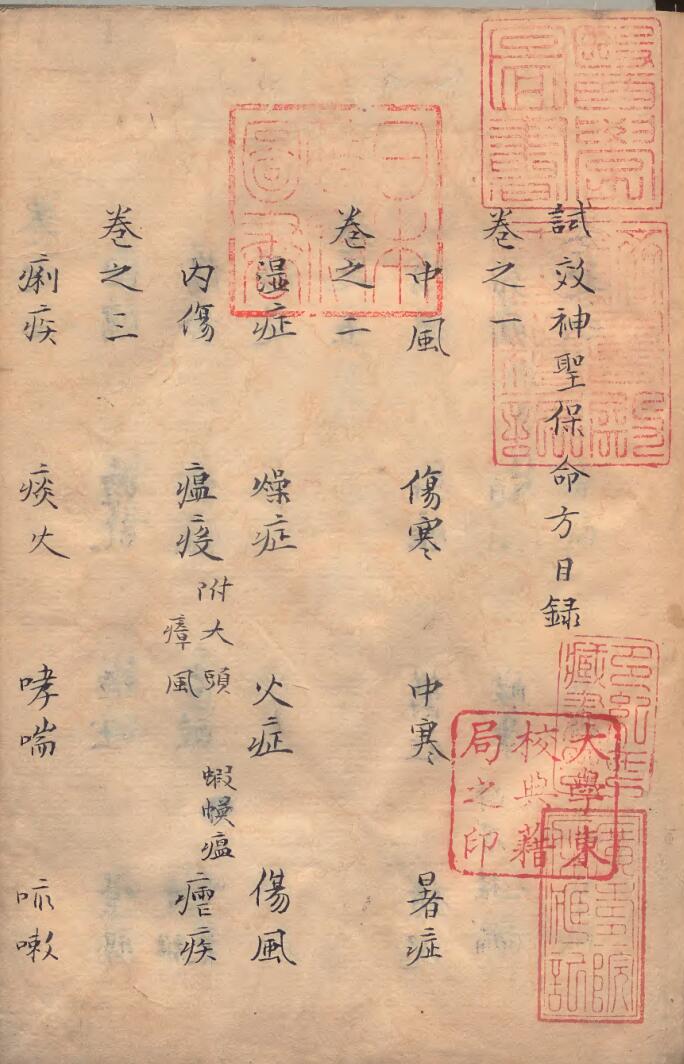 試效神聖保命方目録
卷之一
中風 傷寒 中寒 暑症
卷之二
湿症 燥症 火症 傷風
内傷 瘟疫 附大頭 瘴風 蝦蟆瘟 瘧疾
卷之三
痢疾 痰火 哮喘 咳嗽
日本政府圖書
多紀氏藏書印
大學東校典籍局之印